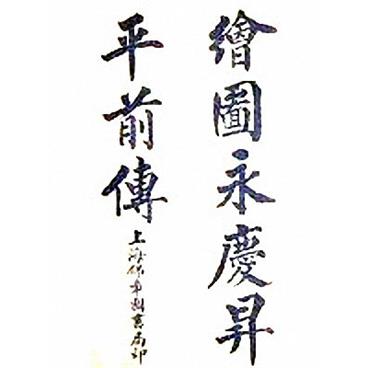 繪圖永慶昇
平前傳
上海
書局印